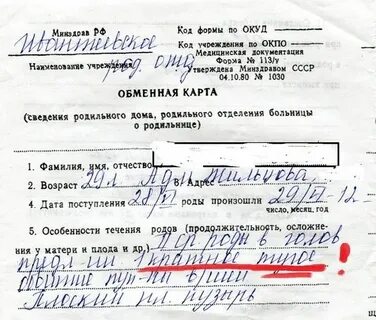 Минздрав РФ
Код формы по ОКУД
Ивантеевское
Код учреждения по ОКПО
Медицинская документация
род. отд
Форма № 113/у
Наименование учреждения
Утверждена Минздравом СССР
04.10.80 № 1030
ОБМЕННАЯ КАРТА
(сведения родильного дома, родильного отделения больницы
о родильнице)
1. Фамилия, имя, отчество
2. Возраст 29л Адрес
4. Дата поступления 28/VI роды произошли 29/VI-12
число, месяц, год
5. Особенности течения родов (продолжительность, осложне-
ния у матери и плода и др.) роды в голов
предл-ии. 1 кратное тугое
обвитие пуп-ны
Плоский пл. пузырь